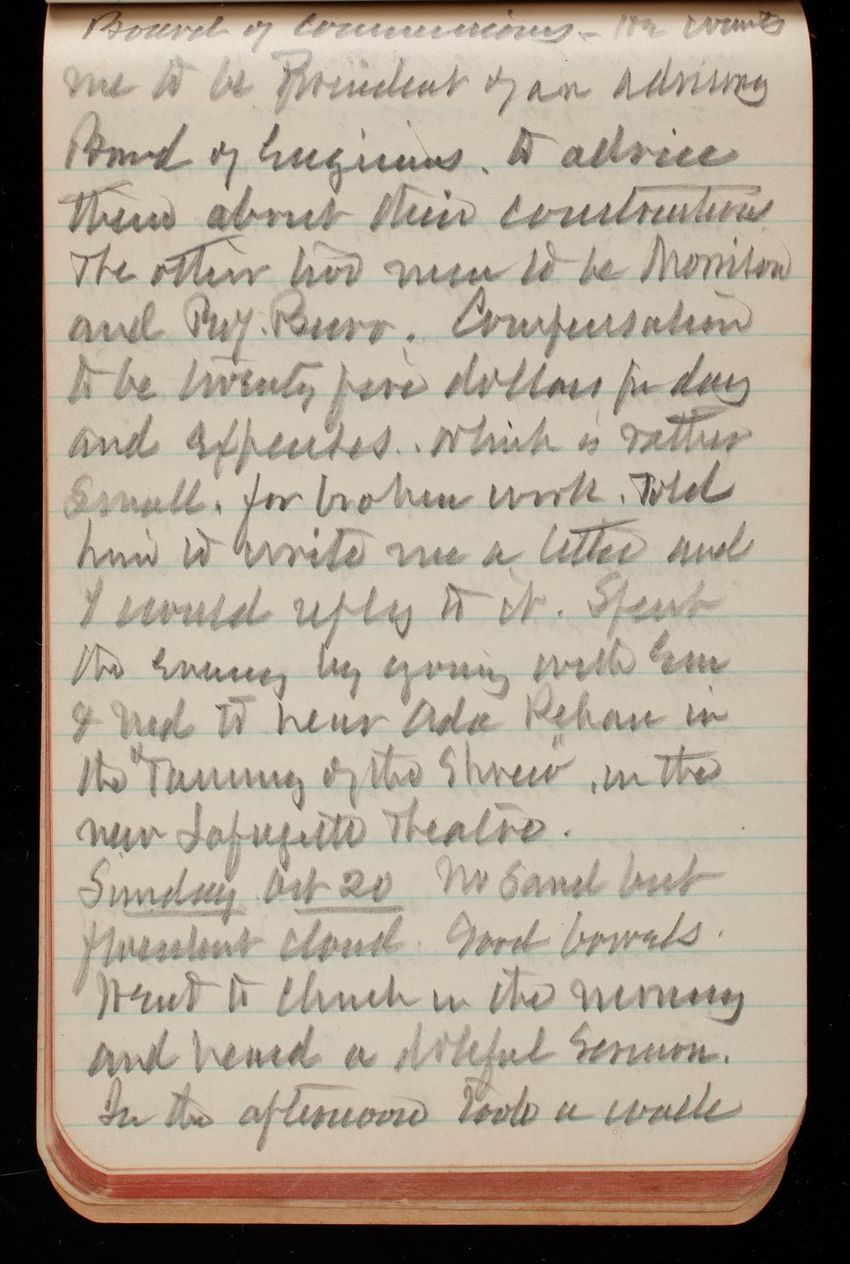 Board of Commissions - He wants
me to be President of an advisory
Board of Engineers. to advise
them about their constructions
The other two men to be Morrison
and Prof. Burr. Compensation
to be twenty five dollars per day
and expenses. which is rather
small. for broken work. Told
him to write me a letter and
I would reply to it. Spent
the evening by going with Em
& Ned to hear Ada Rehan in
the "Taming of the Shrew", in the
new Lafayette Theatre.
Sunday Oct 20 No sand but
flocculent cloud. Good bowels.
Went to church in the morning
and heard a doleful sermon.
In the afternoon took a walk